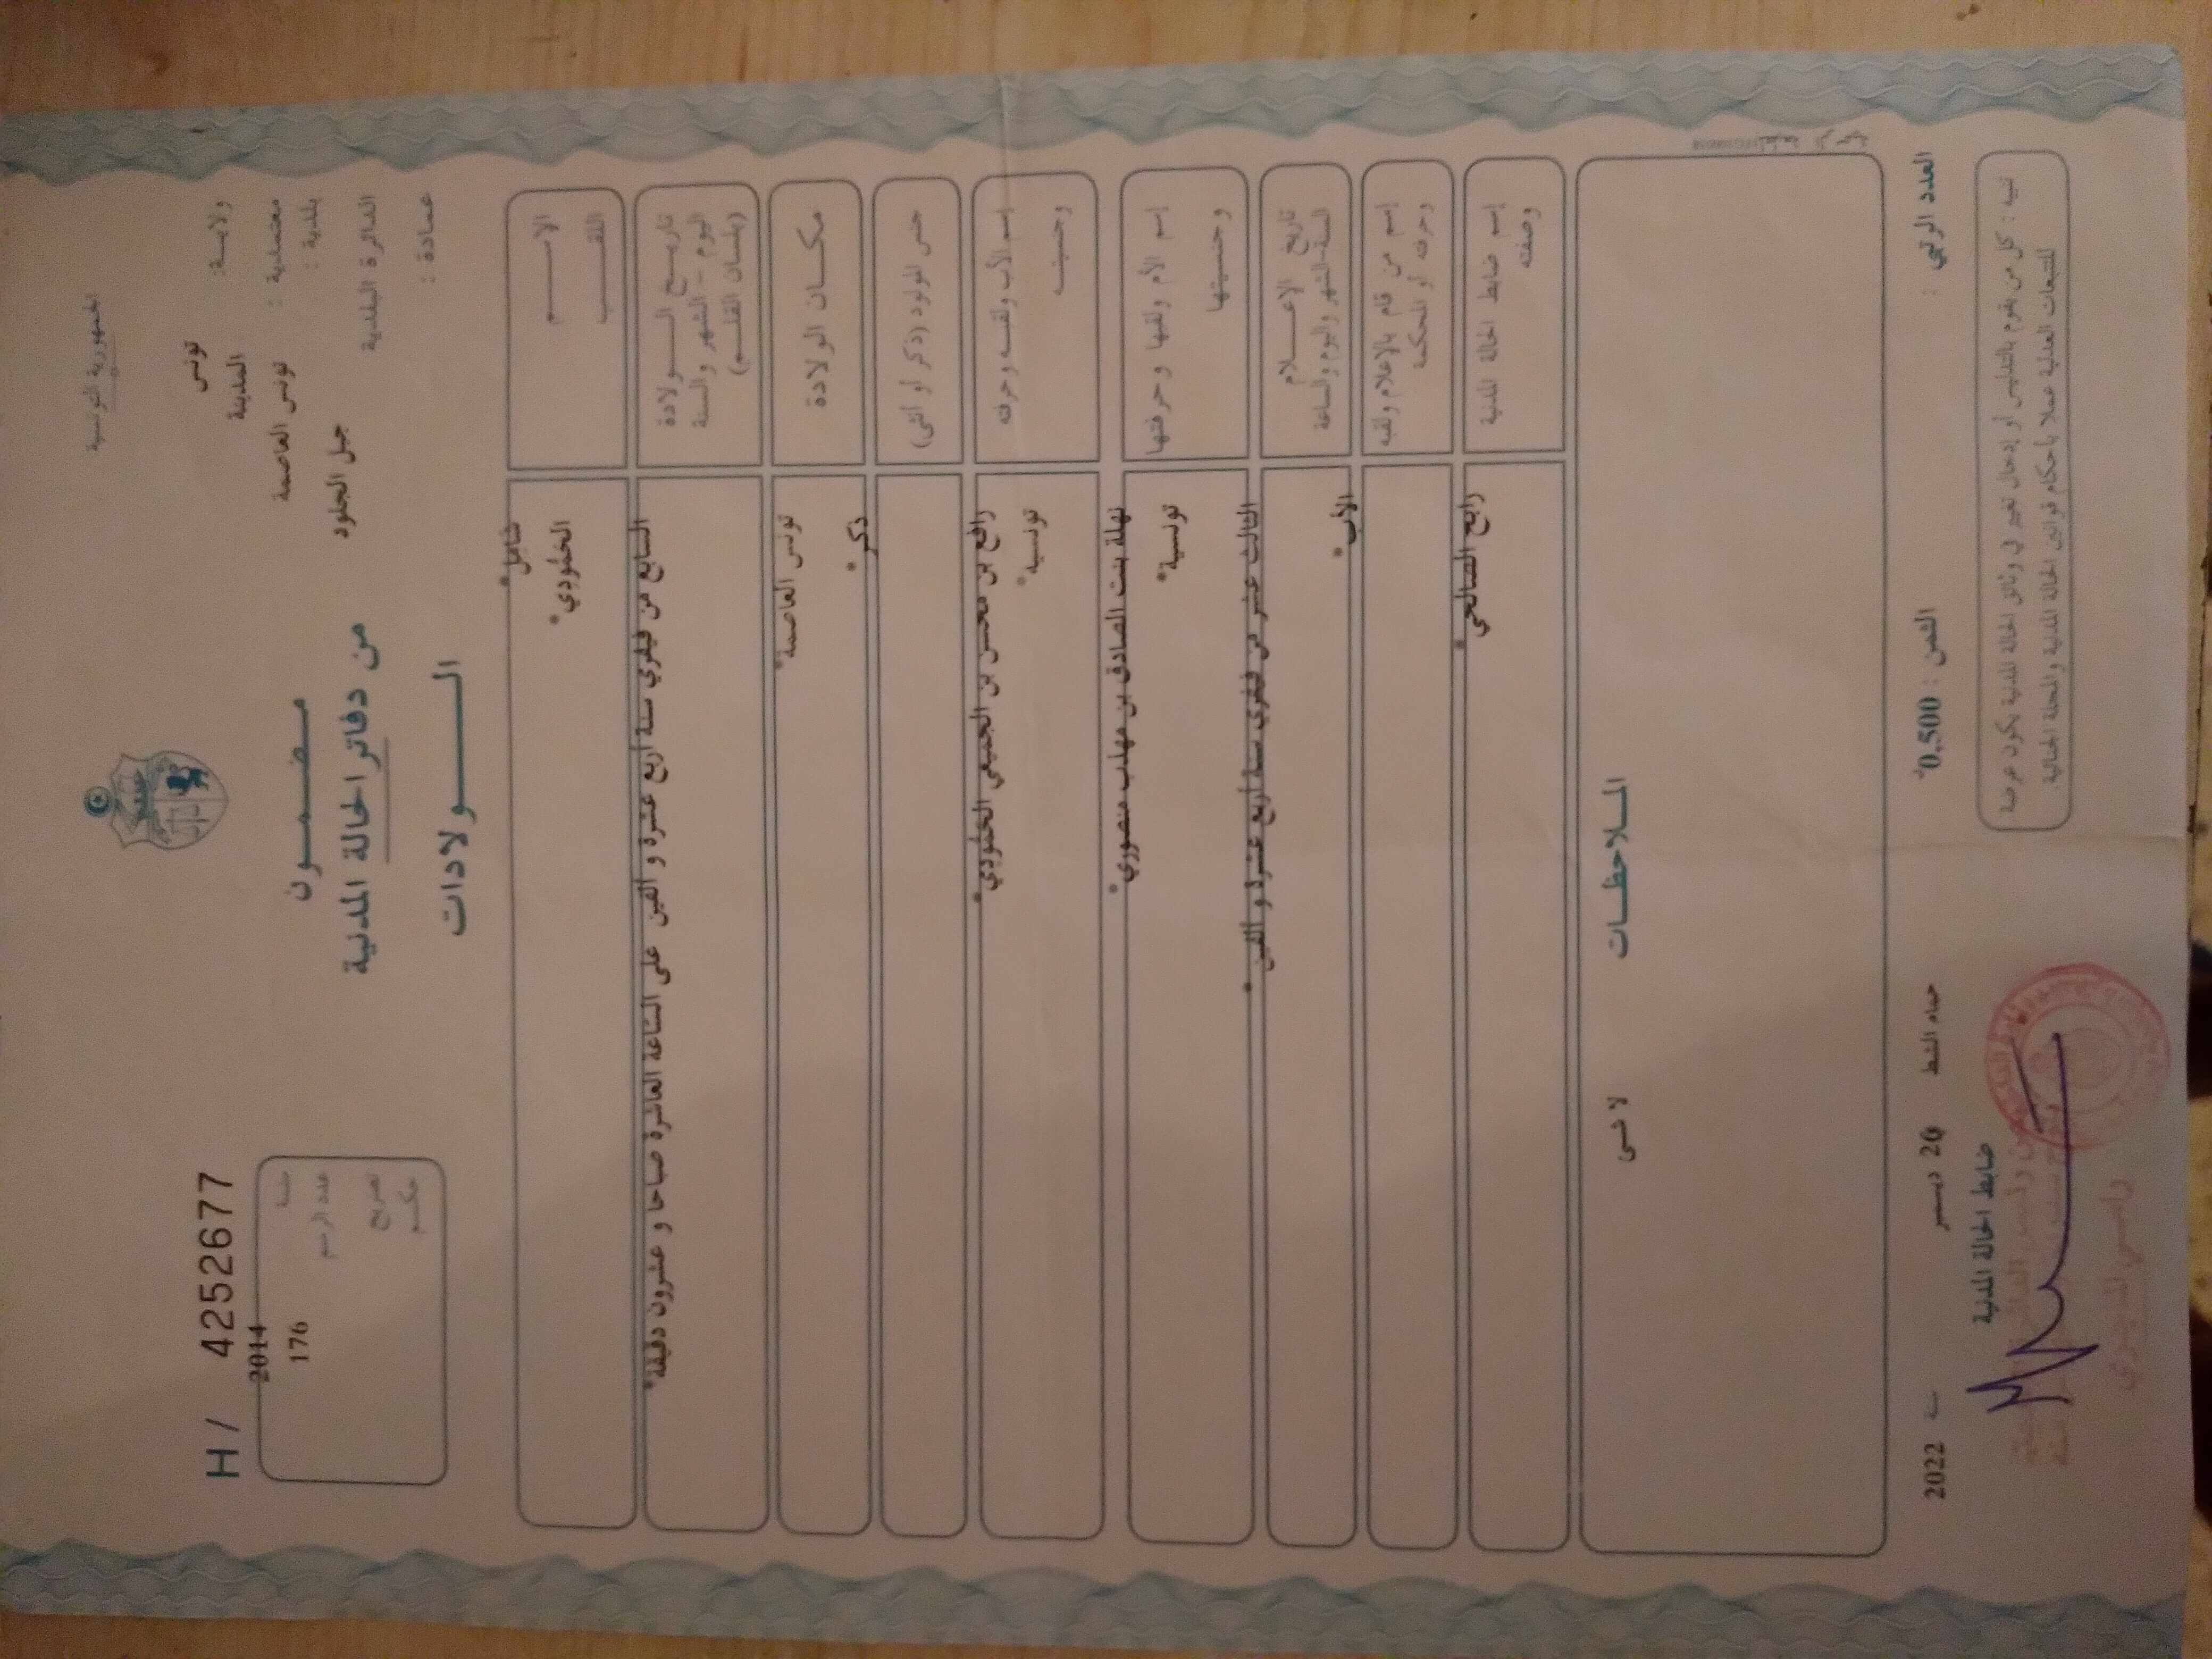 الجمهورية التونسية
H / 4252677
ولاية: تونس
المدينة
معتمدية : تونس العاصمة
بلدية :
جبل الجلود
الدائرة البلدية
عمادة :
مضمون
من دفاتر الحالة المدنية
الولادات
سنة 2014
عدد الرسم 176
تصريح
حكم
الاسم
اللقب
الخلودي*
تاريخ الولادة
اليوم - الشهر والسنة
(بلسان القلم)
السابع من فيفري سنة أربع عشرة و ألفين على الساعة العاشرة صباحا و عشرون دقيقة*
مكان الولادة
تونس العاصمة*
جنس المولود (ذكر أو أنثى)
ذكر*
إسم الأب ولقبه وحرفته
وجنسيته
رافع بن محسن بن الجميعي الخلودي*
تونسية*
إسم الأم ولقبها وحرفتها
وجنسيتها
نهلة بنت الصادق بن مهذب منصوري*
تونسية*
تاريخ الإعلام
السنة-الشهر واليوم والساعة
الثالث عشر من فيفري سنة أربع عشرة و ألفين*
إسم من قام بالإعلام ولقبه
وحرفته أو المحكمة
الأب*
إسم ضابط الحالة المدنية
وصفته
رابح الصالحي*
الملاحظات
لا شى
العدد الرتبي :
الثمن : 0,500
حمام الشط 26 ديسمبر سنة 2022
تنبيه : كل من يقوم بالتدليس أو إدخال تغيير في وثائق الحالة المدنية يكون عرضة
للتتبعات العدلية عملا بأحكام قوانين الحالة المدنية والمجلة الجنائية.
ضابط الحالة المدنية